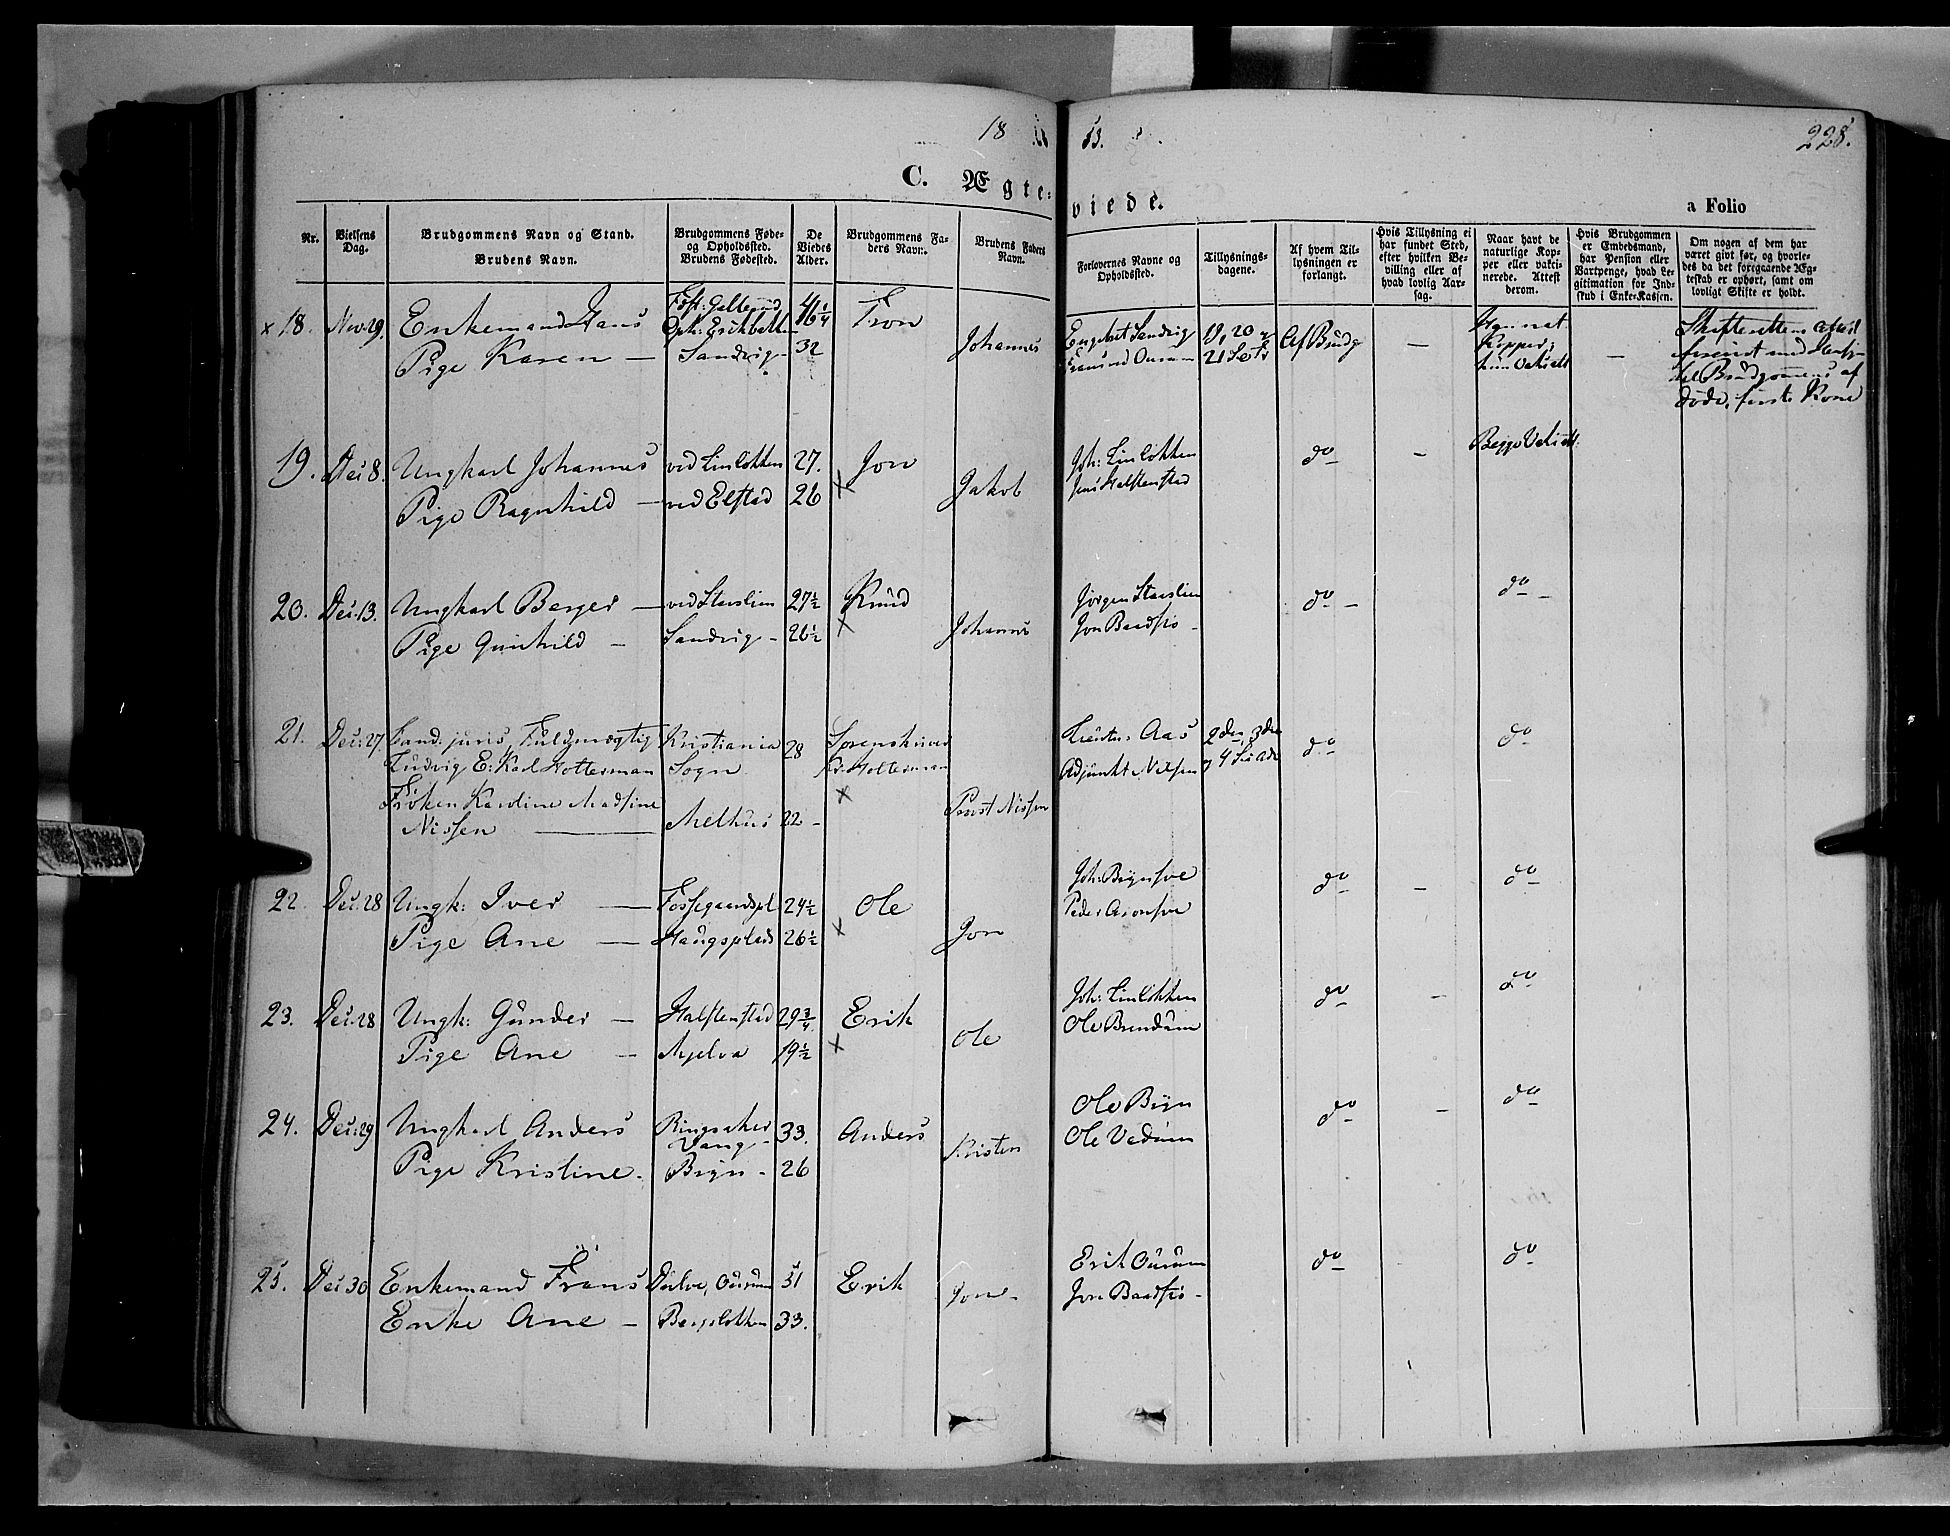 18 53.
228.
C. Ægteviede.
a Folio
Nr.
Vielsens Dag.
Brudgommens Navn og Stand.
Brudens Navn.
Brudgommens Føde- og Opholdssted.
Brudens Fødested.
De Viedes Alder.
Brudgommens Faders Navn.
Brudens Faders Navn.
Forlovernes Navne og Opholdssted.
Tillysningsdagene.
Af hvem Tillysningen er forlangt.
Hvis Tillysning ei har fundet Sted, efter hvilken Bevilling eller af hvad lovlig Aarsag.
Naar havt de naturlige Kopper eller vakcinerede. Attest derom.
Hvis Brudgommen er Embedsmand, har Pension eller Vartpenge, hvad Legitimation for Indskud i Enke-Kassen.
Om nogen af dem har været givt før, og hvorledes da det foregaaende Ægteskab er ophørt, samt om lovligt Skifte er holdt.
x 18. Nov. 29. Enkemand Hans 46 1/4 Tron
Pige Karen — Sandvig — 32 Johannes
Engebret Sandvig
19, 20 og 21 Af Brudg —
nat. Kopper,
Brudgommens af
døde, første Kone
19. Dec. 8. Ungkarl Johannes ved Linløkken 27. Jon
Pige Ragnhild — ved Elstad 26 x Jakob
Joh: Linløkken do — Begge Vakcin.
Jens Halstenstad
20. Dec. 13. Ungkarl Berger — ved Stavslien 27 1/2 Knud
Pige Gunhild — Sandvig — 26 1/2 x Johannes
Jørgen Stavslien do — do —
Jon Baadstø —
21. Dec. 27 Cand. juris, Fuldmægtig Kristiania 28 Sorenskriver
Ludvig E. Karl Holterman Sogn Kr. Holterman
Frøken Karoline Madsine x
Nissen — Melhus 22 — Provst Nissen
Aas 2den, 3die do do
Adjunkt Nilsen og 4
22. Dec. 28 Ungk: Iver — Fossegaardspl 24 1/2 Ole
Pige Ane — Haugsplads 26 1/2 x Jon
Joh: do — do
Peder
23. Dec. 28 Ungk: Gunder — Halstenstad 29 3/4 Erik
Pige Ane — Mjelva 19 1/2 x Ole
Joh: Linløkken do — do
Ole Brendum
24. Dec. 29 Ungkarl Anders Ringsaker 33. Anders
Vang —
Pige Kristine. Bryn — 26 Kristen
Ole Bryn do — do
Ole Vedum
25. Dec. 30 Enkemand Frans Ourum 51 Erik
Enke Ane — Bergeløkken 33. Jon —
Erik Ourum do — do
Jon Baadstø —